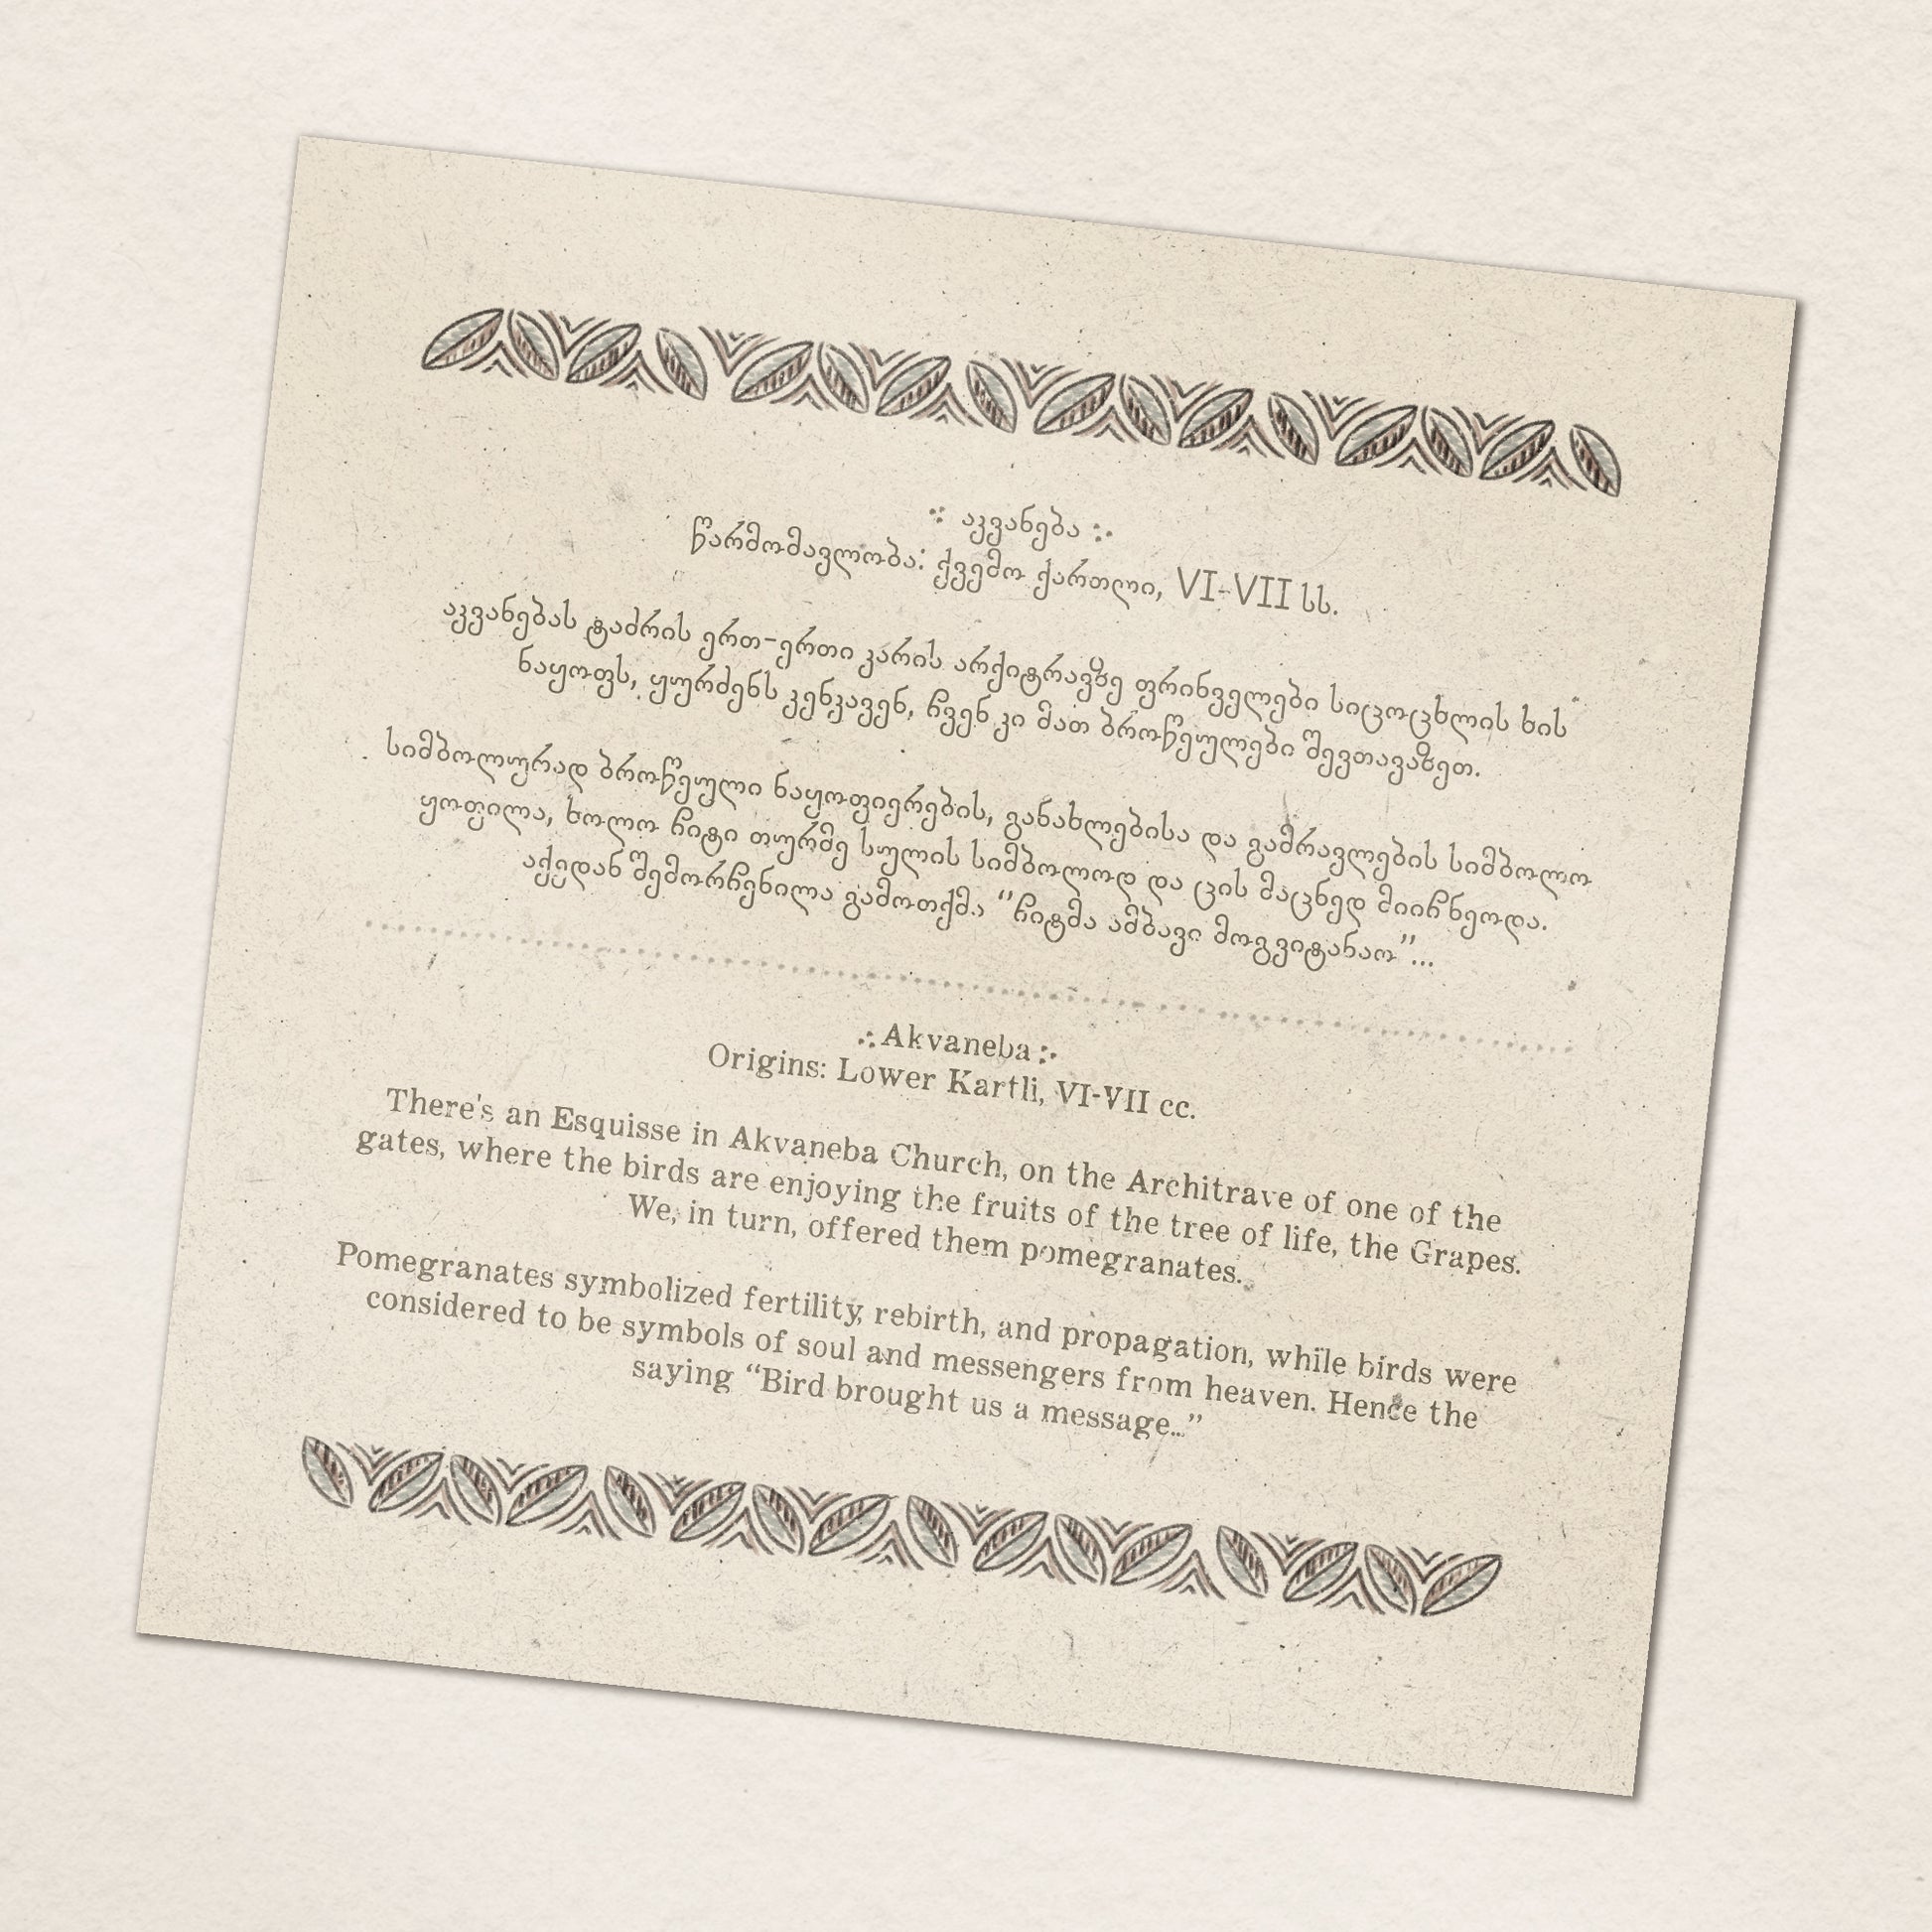 აკვანება
წარმომავლობა: ქვემო ქართლი, VI-VII სს.
აკვანებას ტაძრის ერთ-ერთი კარის არქიტრავზე ფრინველები სიცოცხლის ხის
ნაყოფს, ყურძენს კენკავენ, ჩვენ კი მათ ბროწეულები შევთავაზეთ.
სიმბოლურად ბროწეული ნაყოფიერების, განახლებისა და გამრავლების სიმბოლო
ყოფილა, ხოლო ჩიტი თურმე სულის სიმბოლოდ და ცის მაცნედ მიიჩნეოდა.
აქედან შემორჩენილა გამოთქმა "ჩიტმა ამბავი მოგვიტანაო"...
Akvaneba
Origins: Lower Kartli, VI-VII cc.
There's an Esquisse in Akvaneba Church, on the Architrave of one of the
gates, where the birds are enjoying the fruits of the tree of life, the Grapes.
We, in turn, offered them pomegranates.
Pomegranates symbolized fertility, rebirth, and propagation, while birds were
considered to be symbols of soul and messengers from heaven. Hence the
saying “Bird brought us a message...”